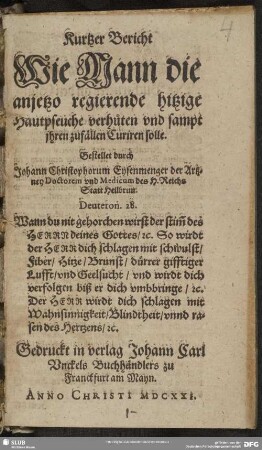 4
Kurtzer Bericht
Wie Mann die
anjetzo regierende hitzige
Hautpseuche verhüten vnd sampt
jhren zufällen Curiren solle.
Gestellet durch
Johann Christophorum Eysenmenger der Artz-
ney Doctorem vnd Medicum des H. Reichs
Statt Heilbrun.
Deuteron. 28.
Wann du nit gehorchen wirst der stim̃ des
HERRN deines Gottes/ ꝛc. So wirdt
der HERR dich schlagen mit schwulst/
Fiber/ Hitze/ Brunst/ dürrer gifftiger
Lufft/ vnd Geelsucht/ vnd wirdt dich
verfolgen biß er dich vmbbringe/ ꝛc.
Der HERR wirdt dich schlagen mit
Wahnsinnigkeit/ Blindtheit/ vnnd ra-
sen des Hertzens/ ꝛc.
Gedruckt in verlag Johann Carl
Vnckels Buchhändlers zu
Franckfurt am Mayn.
ANNO CHRISTI MDCXXI.
SLUB
DFG